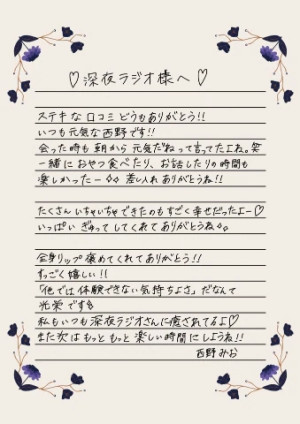 ♡深夜ラジオ様へ♡
ステキな口コミどうもありがとう!!
いつも元気な西野です!!
会った時も朝から元気だねって言ってたよね。笑
一緒におやつ食べたり、お話したりの時間も
楽しかったー✧✧ 差し入れありがとうね!!
たくさんいちゃいちゃできたのもすごく幸せだったよー♡
いっぱいぎゅってしてくれてありがとうね✧。
全身リップ褒めてくれてありがとう!!
すっごく嬉しい!!
「他では体験できない気持ちよさ」だなんて
光栄です
私もいつも深夜ラジオさんに癒されてるよ♡
また次はもっともっと楽しい時間にしようね!!
西野みお